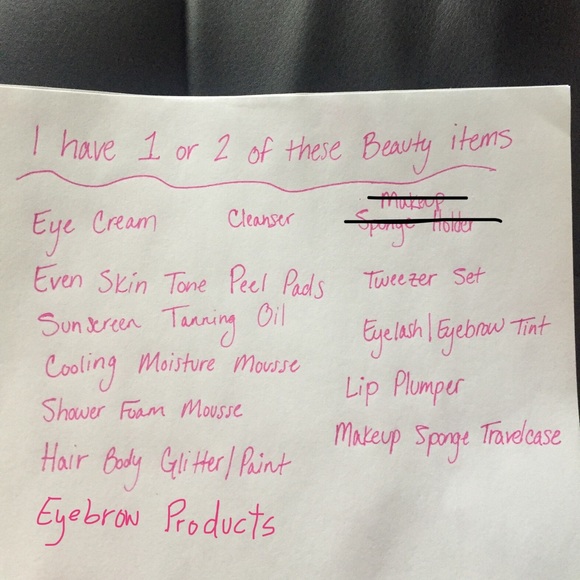 I have 1 or 2 of these Beauty items
Eye Cream
Cleanser
Makeup
Sponge Holder
Even Skin Tone Peel Pads
Tweezer Set
Sunscreen Tanning Oil
Eyelash/Eyebrow Tint
Cooling Moisture Mousse
Lip Plumper
Shower Foam Mousse
Makeup Sponge Travelcase
Hair Body Glitter/Paint
Eyebrow Products